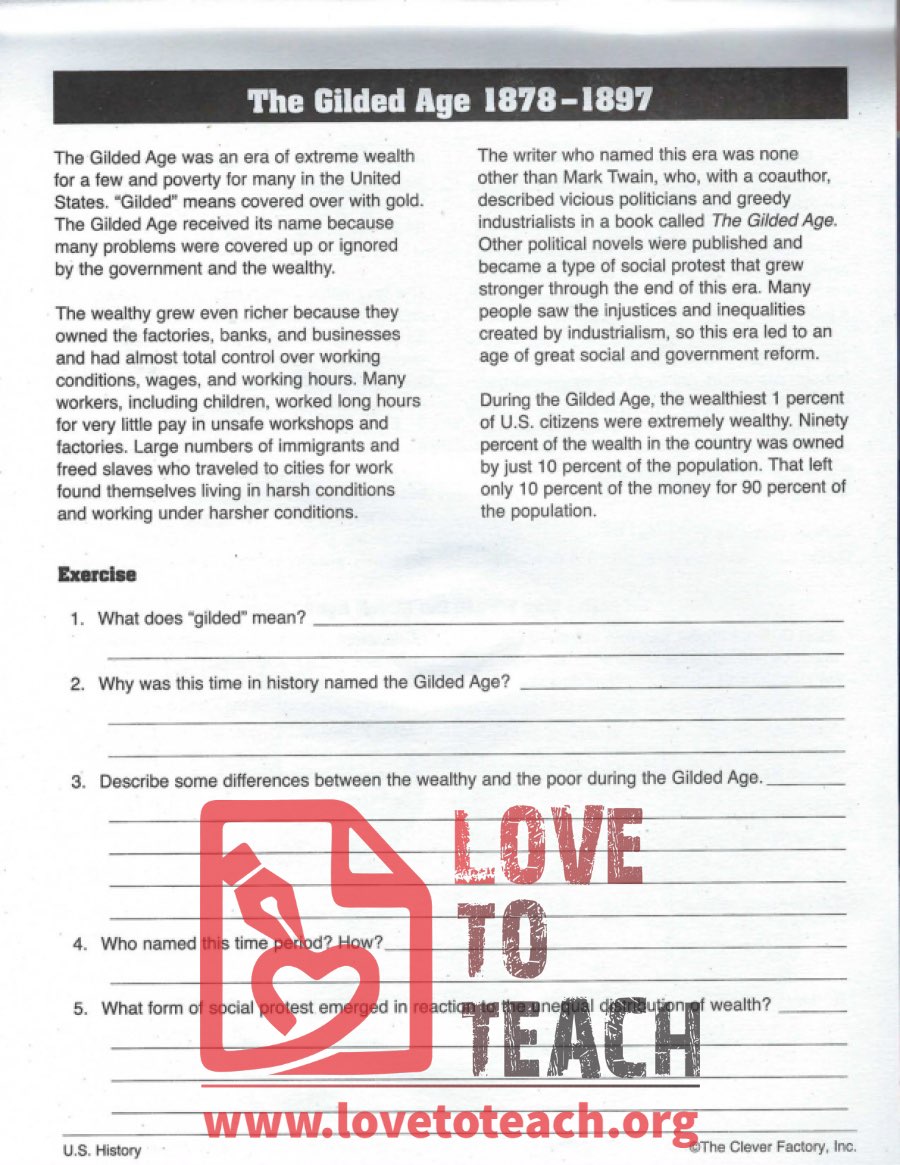 The Gilded Age 1878–1897
The Gilded Age was an era of extreme wealth
for a few and poverty for many in the United
States. “Gilded” means covered over with gold.
The Gilded Age received its name because
many problems were covered up or ignored
by the government and the wealthy.
The wealthy grew even richer because they
owned the factories, banks, and businesses
and had almost total control over working
conditions, wages, and working hours. Many
workers, including children, worked long hours
for very little pay in unsafe workshops and
factories. Large numbers of immigrants and
freed slaves who traveled to cities for work
found themselves living in harsh conditions
and working under harsher conditions.
The writer who named this era was none
other than Mark Twain, who, with a coauthor,
described vicious politicians and greedy
industrialists in a book called The Gilded Age.
Other political novels were published and
became a type of social protest that grew
stronger through the end of this era. Many
people saw the injustices and inequalities
created by industrialism, so this era led to an
age of great social and government reform.
During the Gilded Age, the wealthiest 1 percent
of U.S. citizens were extremely wealthy. Ninety
percent of the wealth in the country was owned
by just 10 percent of the population. That left
only 10 percent of the money for 90 percent of
the population.
Exercise
1. What does “gilded” mean?
2. Why was this time in history named the Gilded Age?
3. Describe some differences between the wealthy and the poor during the Gilded Age.
4. Who named this time period? How?
5. What form of social protest emerged in reaction to the unequal distribution of wealth?
LOVE
TO
TEACH
www.lovetoteach.org
U.S. History
©The Clever Factory, Inc.